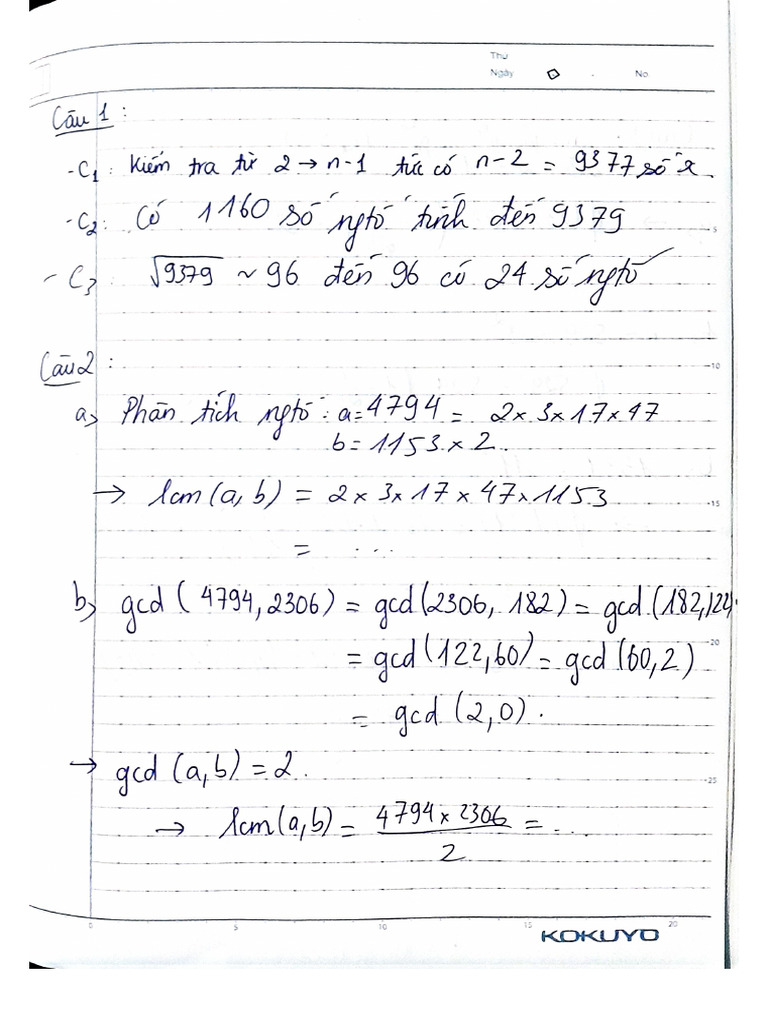 Thu
Ngày No
Câu 1 :
- C₁ : Kiểm tra từ 2 → n-1 tức có n-2 = 9377 số x.
- C₂ : Có 1160 số ngtố tính đến 9379
- C₃ : √9379 ~ 96 đến 96 có 24 số ngtố
Câu 2 :
a, Phân tích ngtố : a = 4794 = 2 x 3 x 17 x 47
b = 1153 x 2.
→ lcm (a, b) = 2 x 3 x 17 x 47 x 1153
= ...
b, gcd ( 4794, 2306) = gcd (2306, 182) = gcd (182, 122)
= gcd (122, 60) = gcd (60, 2)
= gcd (2, 0) .
→ gcd (a, b) = 2.
→ lcm (a, b) = 4794 x 2306 / 2 = ...
5 10 15 20 25
0 5 10 15 20
KOKUYO